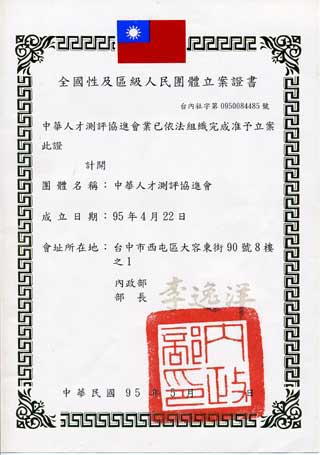 全國性及區級人民團體立案證書
台內社字第0950084485號
中華人才測評協進會業已依法組織完成准予立案
此證
計開
團體名稱：中華人才測評協進會
成立日期：95年4月22日
會址所在地：台中市西屯區大容東街90號8樓
之1
內政部
部長 李逸洋
內政部印
中華民國 95 年 5 月 日